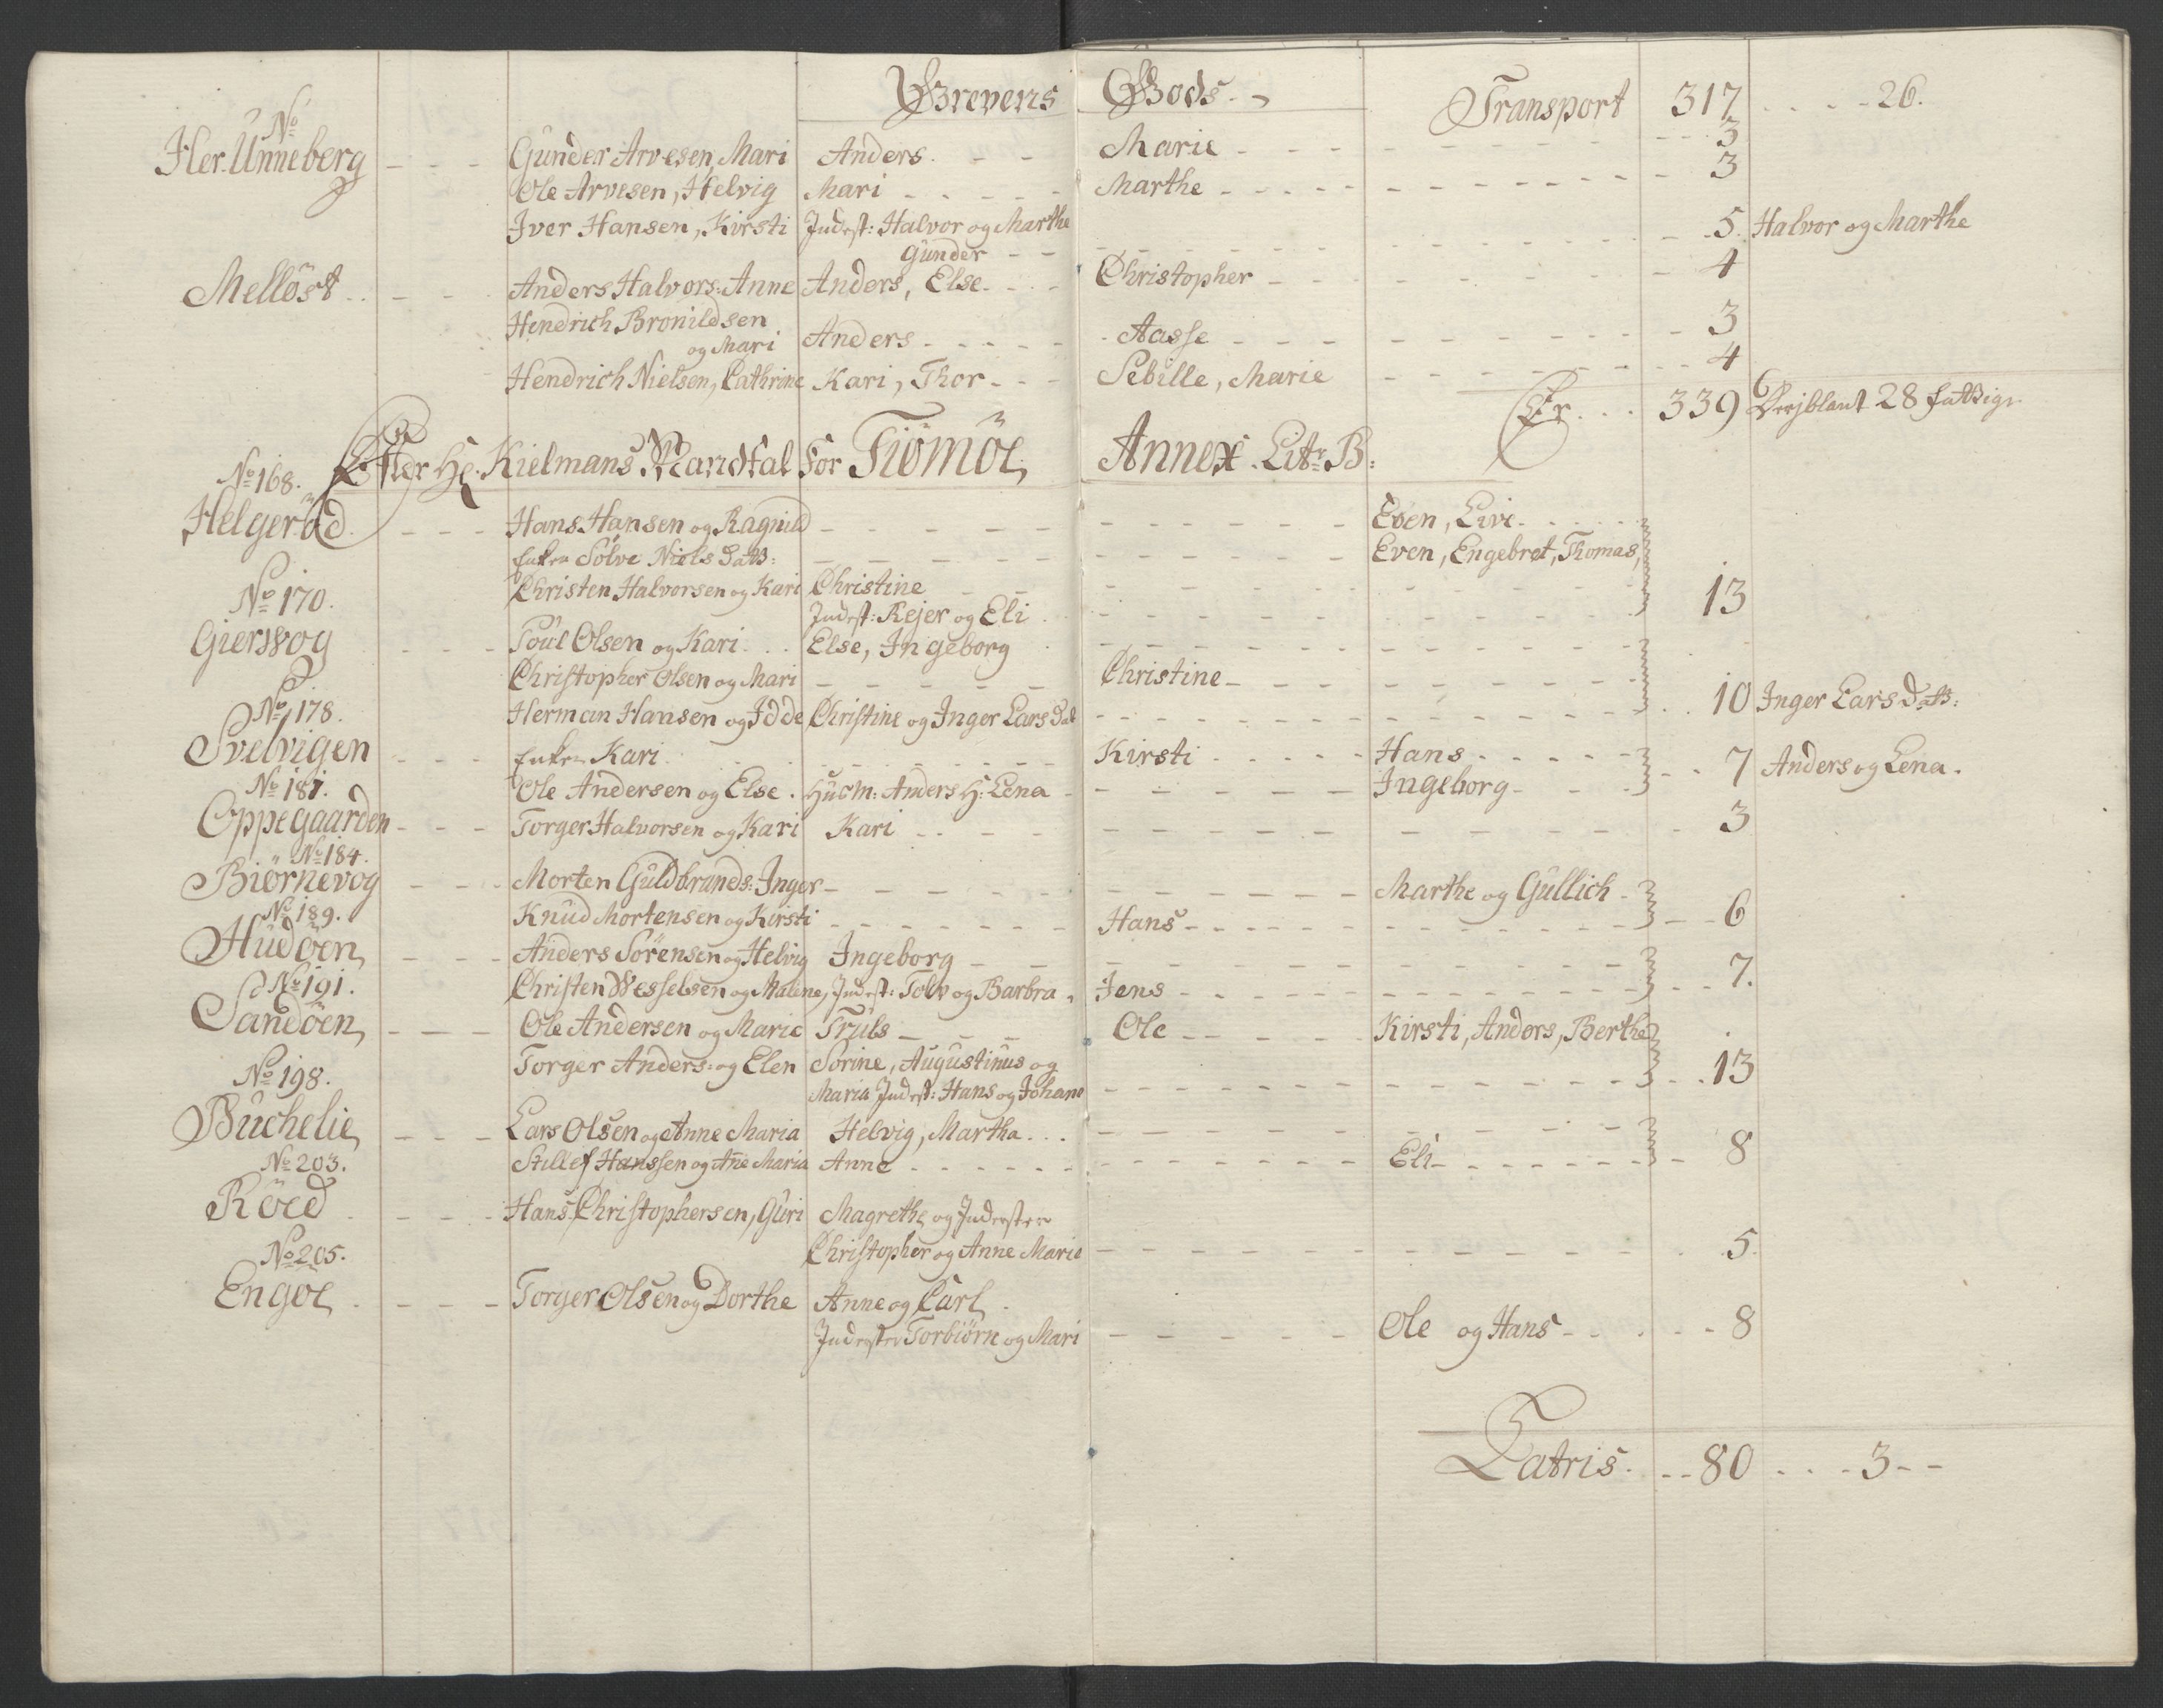 Grevens Gods. Transport 317 - - - 26.
No
Her. Unneberg - - - Gunder Arvesen, Mari Anders. - - Marie - - - 3
Ole Arvesen, Helvig Mari - - - Marthe - - - 3
Iver Hansen, Kirsti Indest: Halvor og Marthe
Gunder - - - - - 5. Halvor og Marthe
Melløst - - - Anders Halvors: Anne Anders, Else - - - Christopher - - - 4
Hendrich Bronildsen
og Mari Anders - - - Aasse - - - 3
Hendrich Nielsen, Cathrine Kari, Thor - - - Sebille, Marie - - - 4
Er. . . 339 Derjblant 28 fattige
Efter Hr. Kielmans Mandtal for Tiømøe Annex. Litr. B:
No 168.
Helgerød - - - Hans Hansen og Ragnild - - - Even, Live - - -
Enken Sølve Niels Datt: - - - Even, Engebret, Thomas,
Christen Halvorsen og Kari Christine - - -
Indest: Rejer og Eli - - - 13
No 170.
Giersvog - - - Poul Olsen og Kari. . . Else, Ingeborg - - -
Christopher Olsen og Mari - - - Christine - - -
Herman Hansen og Idde Christine og Inger Lars Dat - - - 10 Inger Lars Datt:
No 178.
Svelvigen - - - Enken Kari - - - Kirsti - - - Hans - - -
Ole Andersen og Else. Husm: Anders H: Lena - - - Ingeborg - - - 7 Anders og Lena.
No 181.
Oppegaarden - - - Torger Halvorsen og Kari Kari - - - 3
No 184.
Biørnevog - - - Morten Guldbrands: Inger - - - Marthe og Gullich -
Knud Mortensen og Kirsti - - - Hans - - - 6
No 189.
Hudøen - - - Anders Sørensen og Helvig Ingeborg - - -
Christen Wesselsen og Malene, Indest: Tolv og Barbra - Jens - - - 7.
No 191.
Sandøen - - - Ole Andersen og Marie Truls - - - Ole - - - Kirsti, Anders, Berthe
Torger Anders: og Elen Sorine, Augustinus og
Maria Indest: Hans og Johane - - - 13
No 198.
Buchelie - - - Lars Olsen og Anne Maria Helvig, Martha. . . - - -
Stillef Hanssen og Ane Maria Anne - - - Eli - - - 8
No 203.
Røed - - - Hans Christophersen, Guri Magrethe og Inderster
Christopher og Anne Marie - - - 5.
No 205.
Engøe - - - Torger Olsen og Dorthe Anne og Carl.
Inderster Torbiørn og Mari - - - Ole og Hans - - - 8
Latris. - - 80 - - - 3 - -